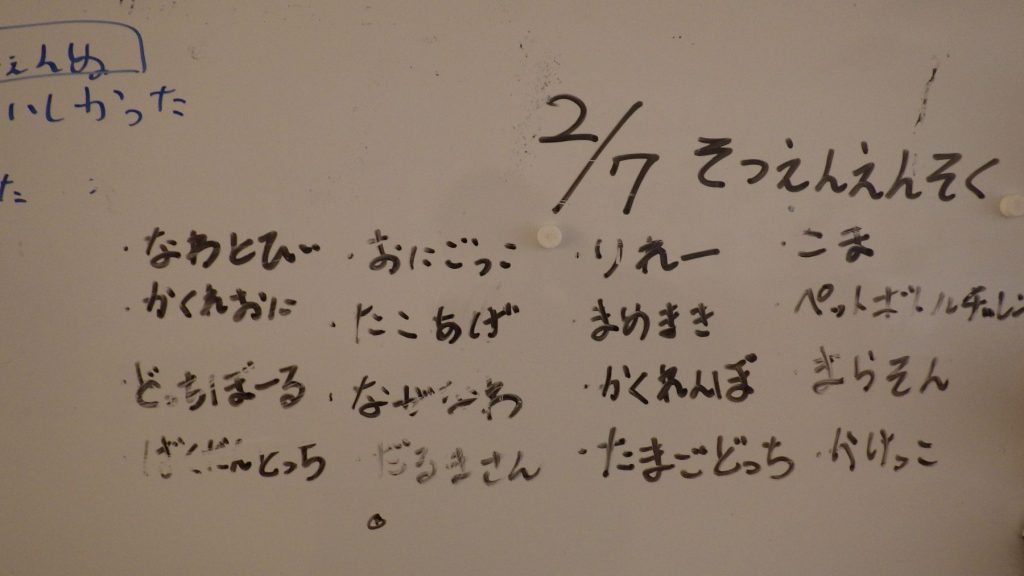 ぇんぬ
いしかった
た
2/7 そつえんえんそく
・なわとび ・おにごっこ ・りれー ・こま
・かくれおに ・たこあげ ・まめまき ・ペットボトルチャレン
・どっちぼーる ・なげなわ ・かくれんぼ ・まらそん
・ばくだんどっち ・だるまさん ・たまごどっち ・かけっこ